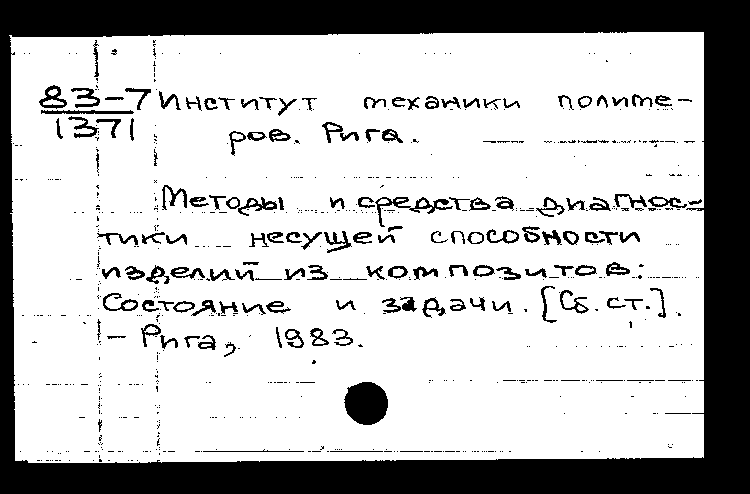 83-7 Институт механики полиме-
1371 ров. Рига.
Методы и средства диагнос-
тики несущей способности
изделий из композитов:
Состояние и задачи. [Сб. ст.].
- Рига, 1983.